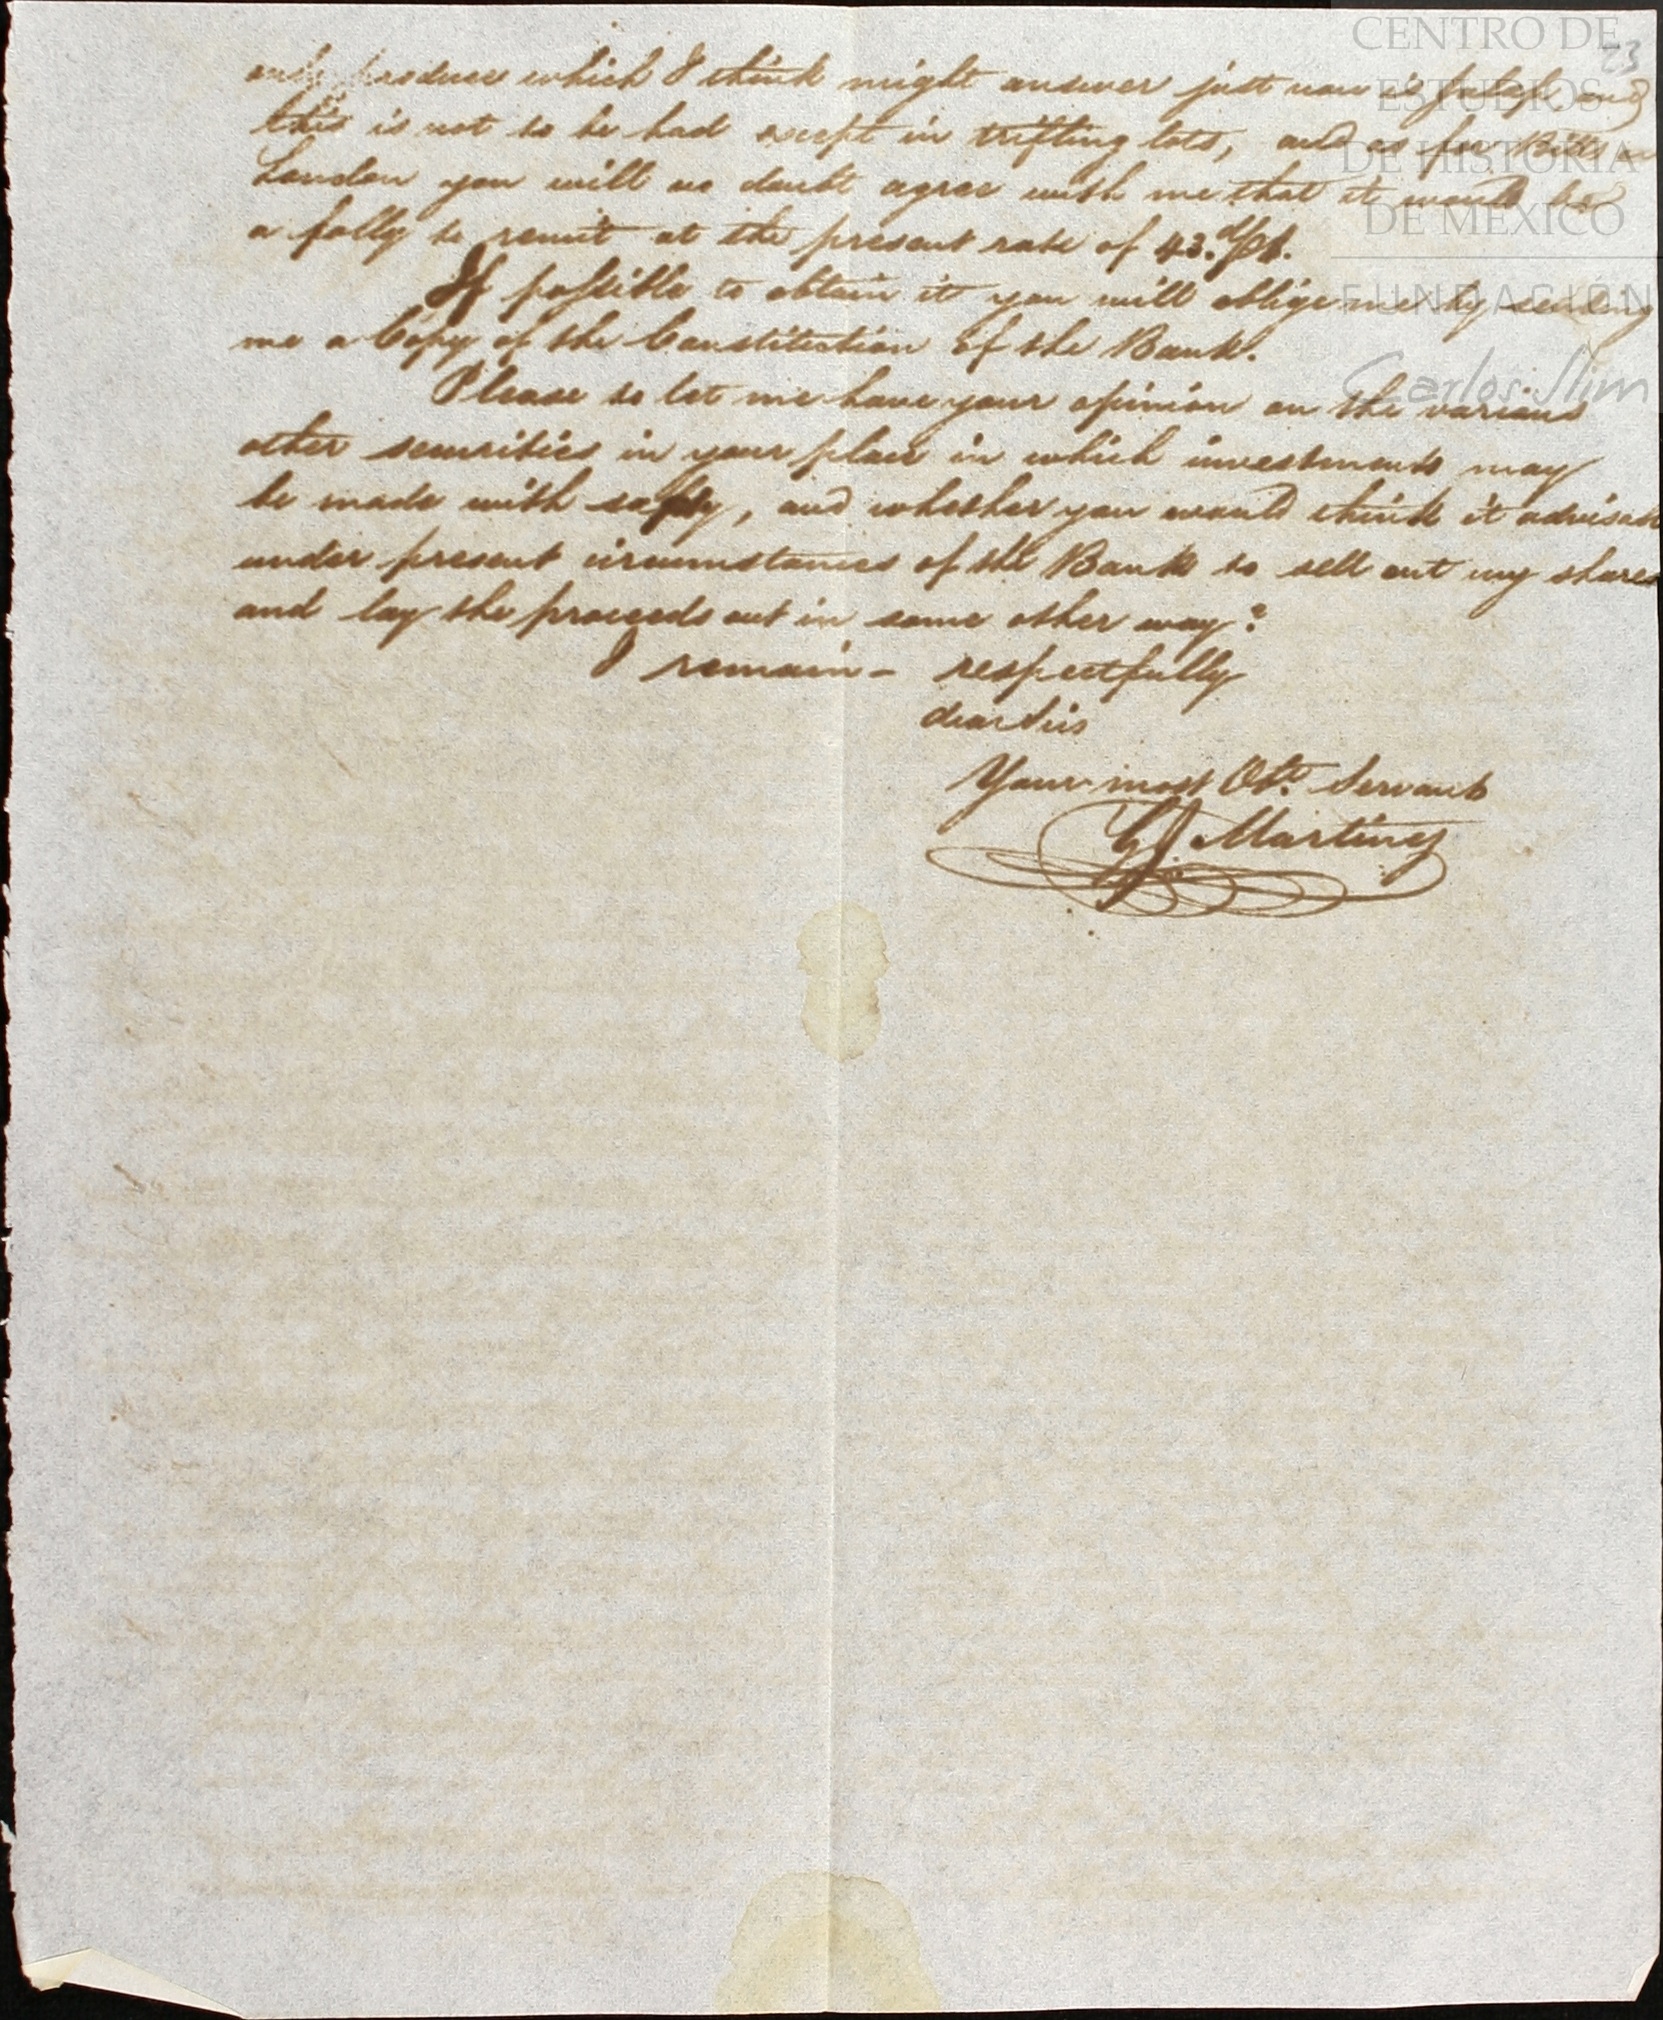 CENTRO DE
ESTUDIOS
DE HISTORIA
DE MÉXICO
FUNDACIÓN
Carlos Slim
23
only produce which I think might answer just now is Jalap and
this is not to be had except in trifling lots, and as for Bills on
London you will no doubt agree with me that it would be
a folly to remit at the present rate of 43.d/p$.
If possible to obtain it you will oblige me by sending
me a Copy of the Constitution of the Bank.
Please to let me have your opinion on the various
other securities in your place in which investments may
be made with safety, and whether you would think it advisable
under present circumstances of the Bank to sell out my shares
and lay the proceeds out in some other way?
I remain – respectfully
dear Sirs
Your most Obt. Servant
Martinez